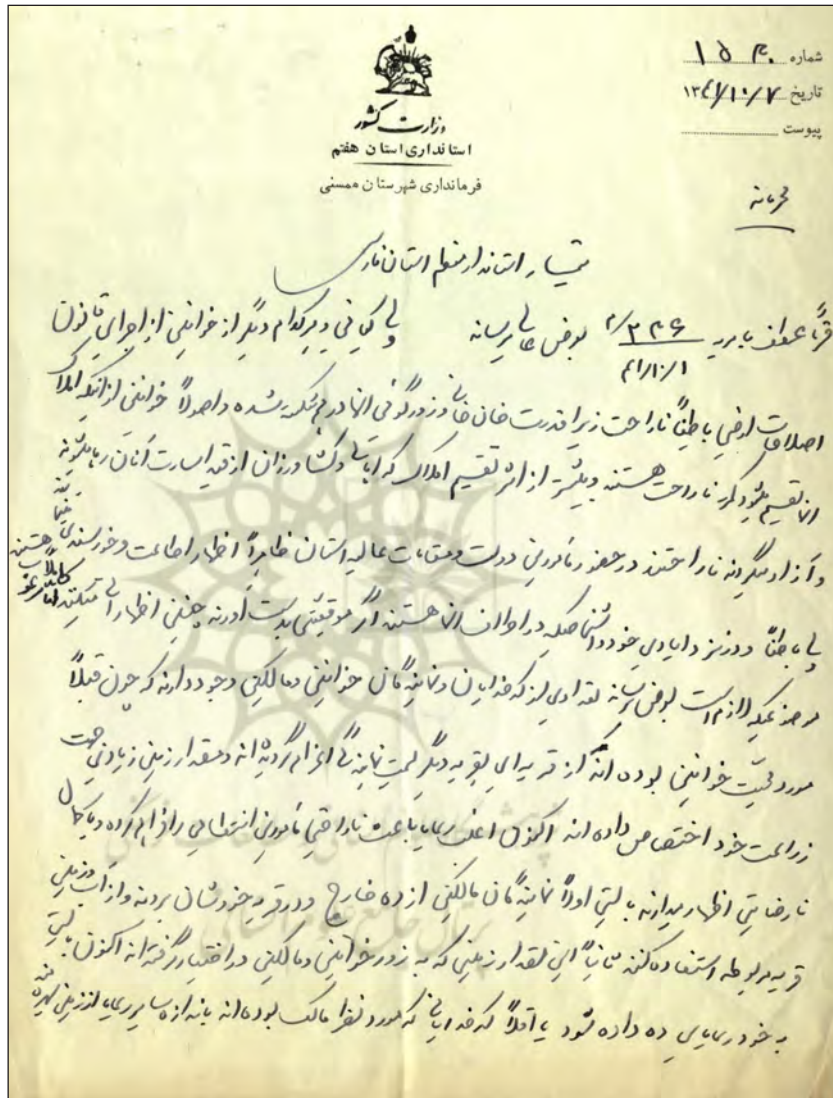 شماره ۱۵۳۰
تاریخ ۱۳۴۱/۱۰/۷
پیوست
وزارت کشور
استانداری استان هفتم
فرمانداری شهرستان ممسنی
محرمانه
تیمسار استاندار معظم استان فارس
عطف بامریه ۳۴۶/م ۴۱/۱۰/۱ بعرض عالی میرساند ولی کیانی و هر کدام دیگر از خوانین از اجرای قانون
اصلاحات ارضی باطناً ناراحت زیرا قدرت خان خانی و زورگوئی آنها در هم شکسته شده و اصولاً خوانین از اینکه املاک
آنها تقسیم میشود ناراحت هستند و بیشتر از اثر تقسیم املاک که اهالی و کشاورزان از قید اسارت آنان رها میشوند
و آزاد میگردند ناراحتند در حضور مامورین دولت و مقامات عالیه استان ظاهراً اظهار اطاعت و خورسندی مینمایند
ولی باطناً و در نزد ایادی خود و اشخاصیکه در اطراف آنها هستند اگر موقعیتی بدست آورند چنین اظهاراتی میکنند
موضوعیکه لازم است بعرض برساند تعدادی از کدخدایان و نمایندگان خوانین و مالکین وجود دارند که چون قبلاً
مورد محبت خوانین بوده‌اند از قریه‌ای بقریه دیگر بسمت نمایندگی اعزام گردیده‌اند و مقدار زمین زیادی جهت
زراعت خود اختصاص داده‌اند اکنون اغلب رعایا باعث ناراحتی مامورین انتظامی را فراهم کرده و با کمال
نارضایتی اظهار میدارند بایستی اولاً نمایندگان مالکین از ده خارج و در قریه خودشان بروند و از آب و زمین
قریه مربوطه استفاده کنند ثانیاً این مقدار زمین که به زور خوانین و مالکین در اختیار گرفته‌اند اکنون بایستی
به خود رعایای ده داده شود یا اقلاً کدخدایانی که مورد نظر مالک بوده‌اند باندازه سایر رعایا از زمین بهره‌مند